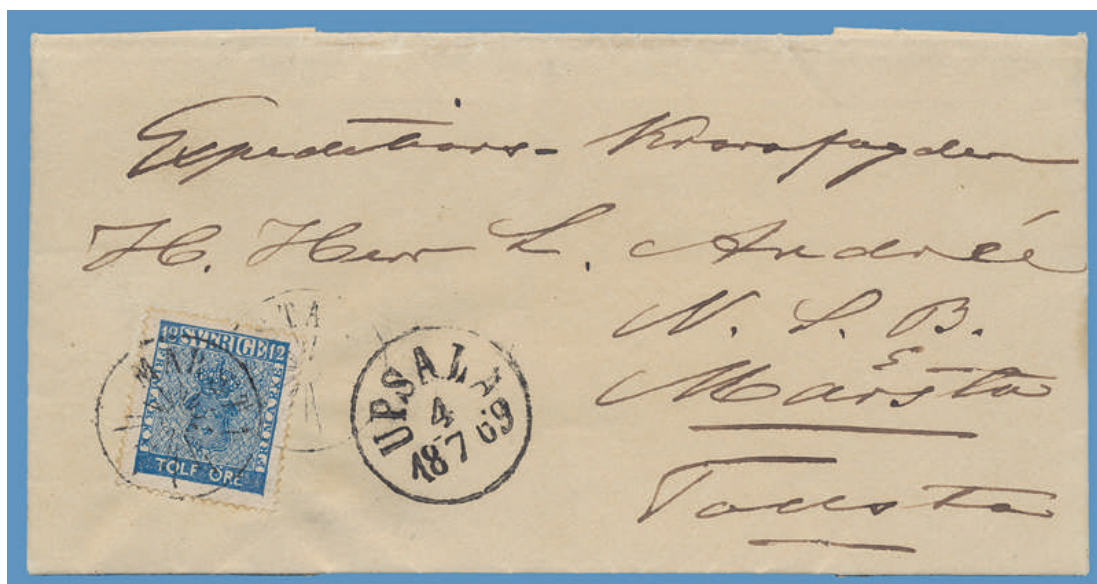 Expeditions- Kronofogden
H. Herr L. Andrée
N. L. B.
Märsta
Tollsta
12 SVERIGE 12
FRIMÄRKE
TOLF ÖRE
UPSALA
4
18 7 69